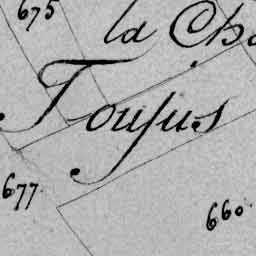 675
la Cha
Toujus
677.
660.